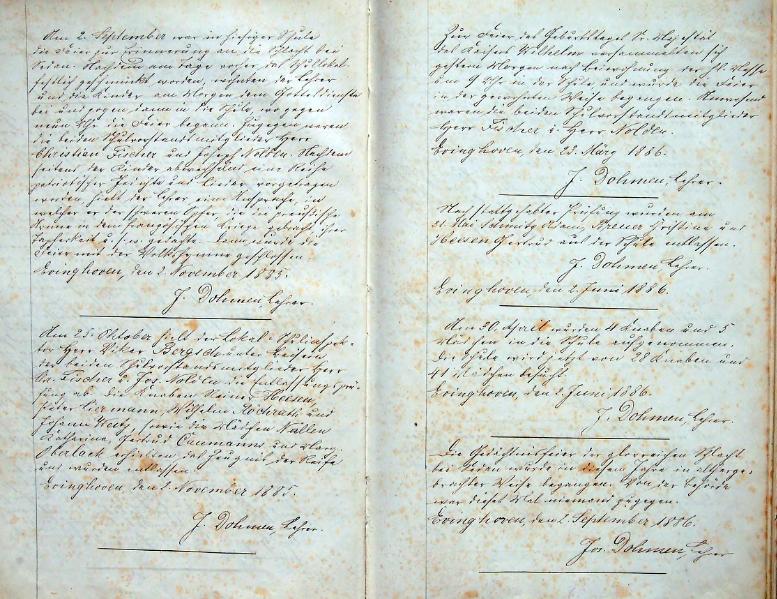 Am 2. September war in hiesiger Schule
die Feier zur Erinnerung an die Schlacht bei
Sedan. Nachdem am Tage vorher das Schullokal
festlich geschmückt worden, wohnten der Lehrer
und die Kinder am Morgen dem Gottesdienste
bei und zogen dann in die Schule, wo gegen
neun Uhr die Feier begann. Zugegen waren
die beiden Schulvorstandsmitglieder Herr
Christian Fischer und Joseph Nolden. Nachdem
seitens der Kinder abwechselnd eine Reihe
patriotischer Gedichte und Lieder vorgetragen
worden, hielt der Lehrer eine Ansprache, in
welcher er der schweren Opfer, die die preußische
Armee in dem französischen Kriege gebracht, ihrer
Tapferkeit u.s.w. gedachte. Dann wurde die
Feier mit der Volkshymne geschlossen.
Evinghoven, den 2. November 1885.
J. Dohmen, Lehrer.
Am 25. Oktober hielt der Lokal-Schulinspek-
tor Herr Vikar Berger unter Beisein
der beiden Schulvorstandsmitglieder Herr
Chr. Fischer u. Jos. Nolden die Entlassungsprü-
fung ab. Die Knaben Heinr. Heesen,
Peter Wilhelm und
Johann sowie die Mädchen Nallen
Katharina, Gertrud Caumanns und Marg.
Oberbach erhielten das Zeugnis der Reife
und wurden entlassen.
Evinghoven, den 2. November 1885.
J. Dohmen, Lehrer.
Zur Feier des Geburtstages Sr. Majestät
des Kaisers Wilhelm versammelten sich
gestern Morgen nach Beiwohnung der hl. Messe
um Uhr in der Schule und wurde die Feier
in der gewohnten Weise begangen. Anwesend
waren die beiden Schulvorstandsmitglieder
Herr Fischer u. Herr Nolden.
Evinghoven, den 23. März 1886.
J. Dohmen, Lehrer.
Nach stattgehabter Prüfung wurden am
21. Mai Schmitz Adam, Brener Christine und
Heesen Gertrud aus der Schule entlassen.
J. Dohmen, Lehrer.
Evinghoven, den 2. Juni 1886.
Am 30. April wurden 4 Knaben und 5
Mädchen in die Schule aufgenommen.
Die Schule wird jetzt von 28 Knaben und
41 Mädchen besucht.
Evinghoven, den 2. Juni 1886.
J. Dohmen, Lehrer.
Die Gedächtnisfeier der glorreichen Schlacht
bei Sedan wurde in diesem Jahre in altherge-
brachter Weise begangen. Von der Behörde
war dieses Mal niemand zugegen.
Evinghoven, den 2. September 1886.
Jos. Dohmen, Lehrer